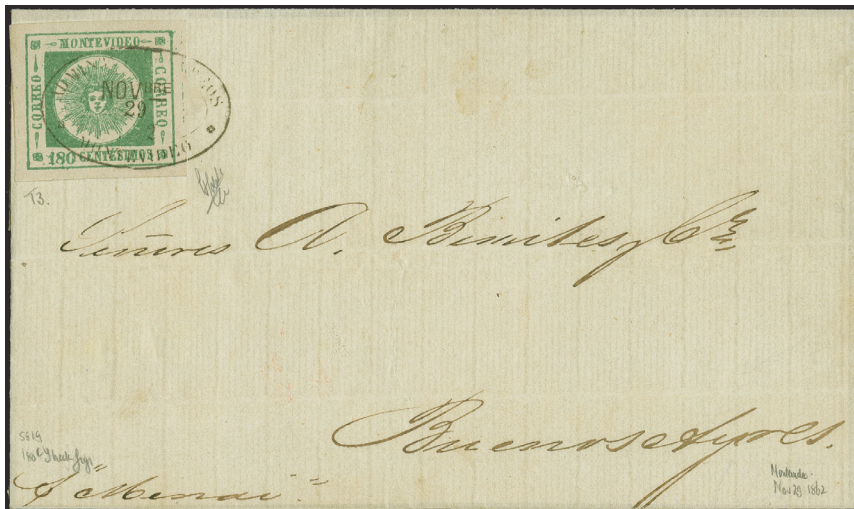 MONTEVIDEO
CORREO
CORREO
180 CENTESIMOS
NOVBRE
29
MONTEVIDEO
T3.
Señores A. Benites y Ca
Buenos Ayres.
Montevideo.
Nov 29 1862